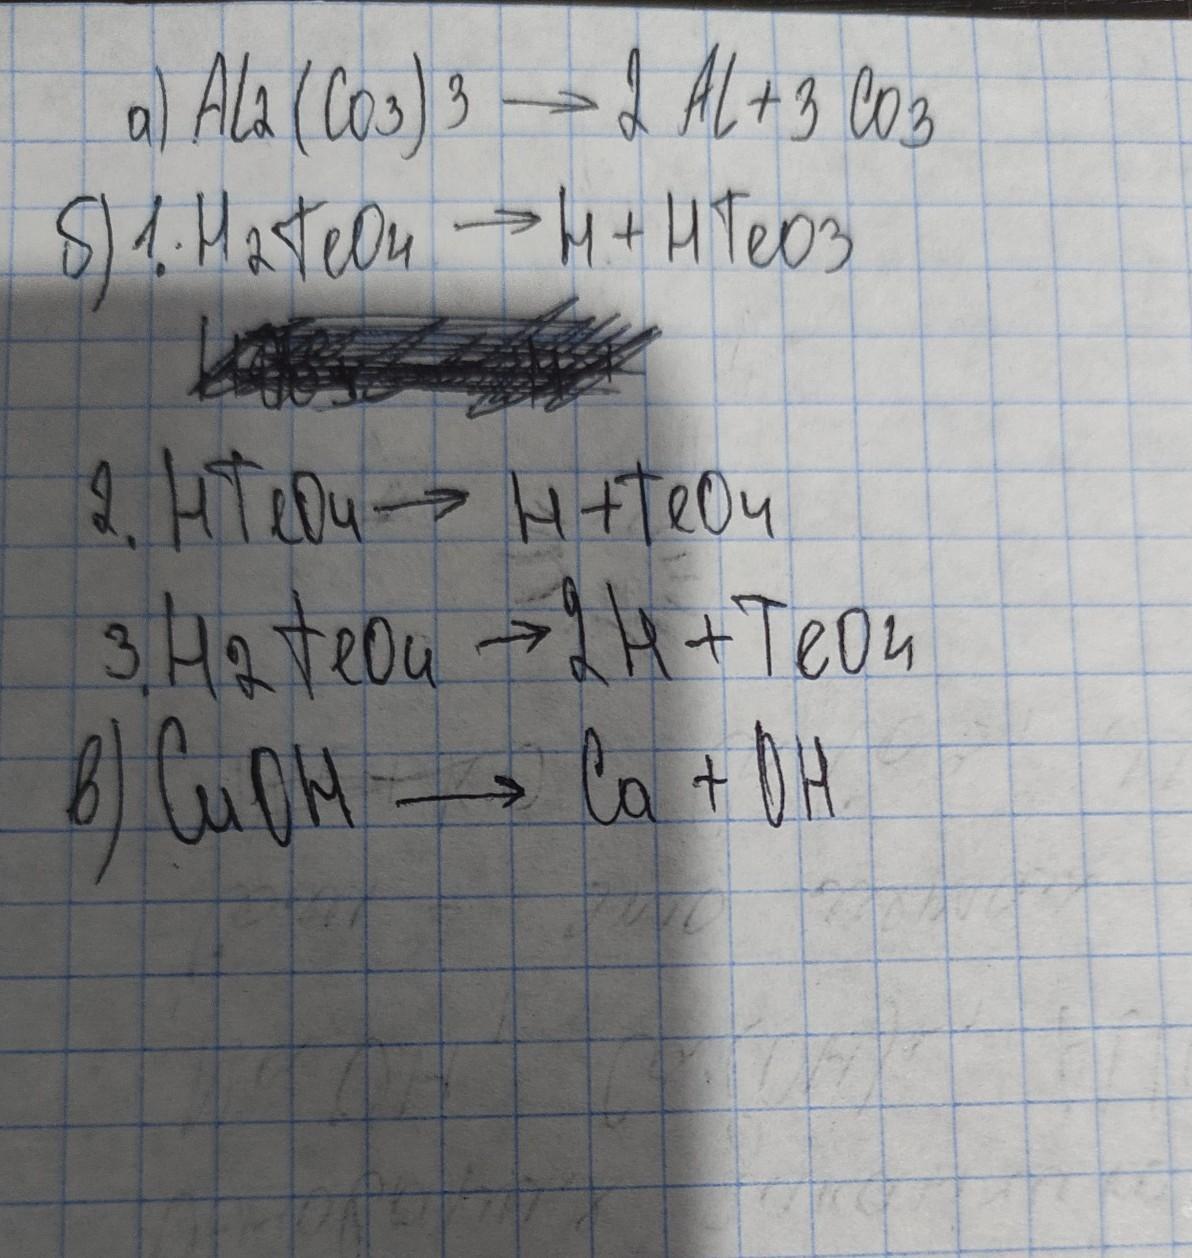 а) Al2(Co3)3 → 2 Al + 3 Co3
б) 1. H2TeO4 → H + HTeO3
2. HTeO4 → H + TeO4
3. H2TeO4 → 2H + TeO4
в) CuOH → Ca + OH